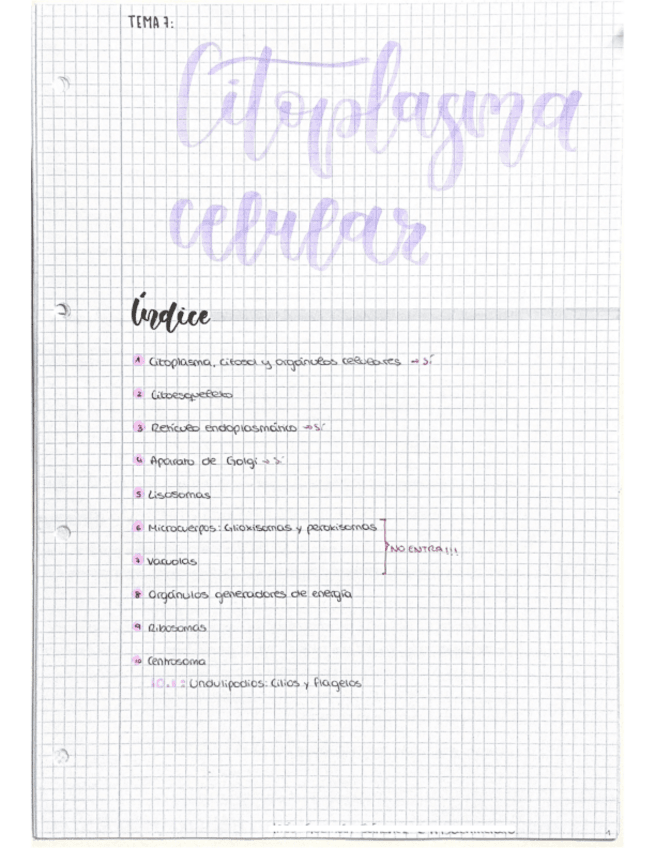 TEMA 7:
Citoplasma
celular
Índice
1 Citoplasma, citosol y orgánulos celulares → sí
2 Citoesqueleto
3 Retículo endoplasmático → sí
4 Aparato de Golgi → sí
5 Lisosomas
6 Microcuerpos: Glioxisomas y peroxisomas
NO ENTRA!!!
7 Vacuolas
8 Orgánulos generadores de energía
9 Ribosomas
10 Centrosoma
10.1: Undulipodios: Cilios y flagelos
1